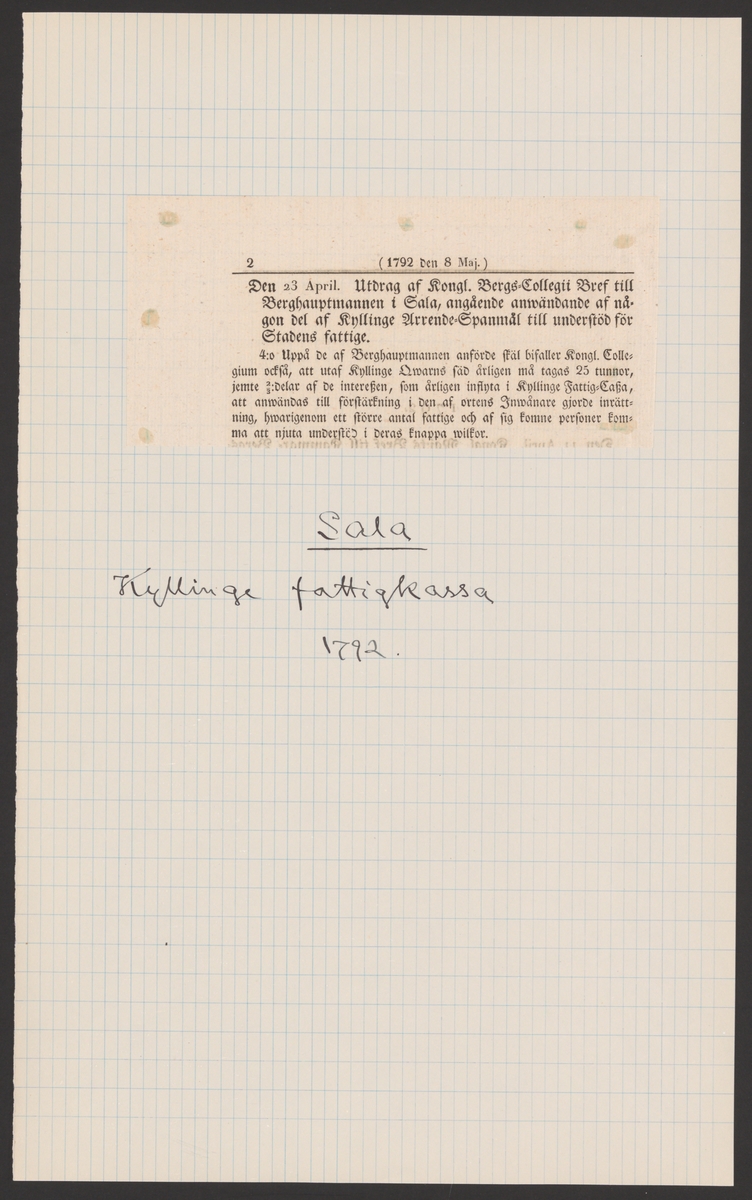 2 (1792 den 8 Maj.)
Den 23 April. Utdrag af Kongl. Bergs-Collegii Bref till
Berghauptmannen i Sala, angående anwändande af nå-
gon del af Kyllinge Arrende-Spanmål till understöd för
Stadens fattige.
4:o Uppå de af Berghauptmannen anförde skäl bifaller Kongl. Colle-
gium också, att utaf Kyllinge Qwarns säd årligen må tagas 25 tunnor,
jemte :delar af de intereßen, som årligen inflyta i Kyllinge Fattig-Caßa,
att anwändas till förstärkning i den af ortens Inwånare gjorde inrätt-
ning, hwarigenom ett större antal fattige och af sig komne personer kom-
ma att njuta understöd i deras knappa wilkor.
Sala
Kyllinge fattigkassa
1792.